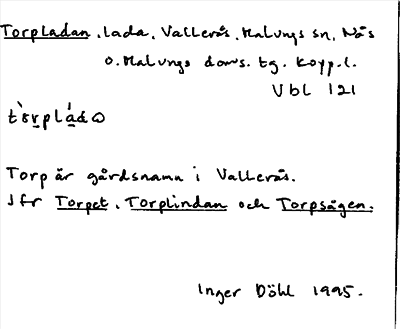 Torpladan, lada, Vallerås, Malungs sn, Nås
o. Malungs doms. tg. Kopp. l.
Vbl 121
Torp är gårdsnamn i Vallerås.
Jfr Torpet, Torplindan och Torpsågen.
Inger Döhl 1995.